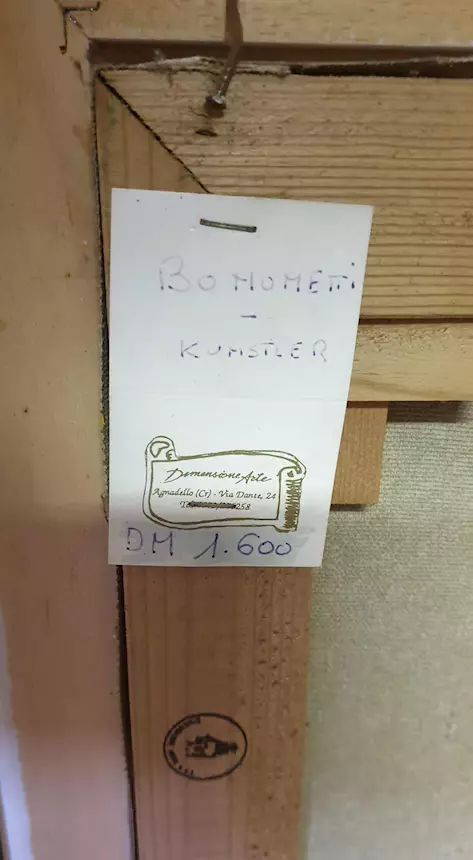 BONOMETTI
-
KUNSTLER
Dimensione Arte
Agnadello (Cr) - Via Dante, 24
258
DM 1.600